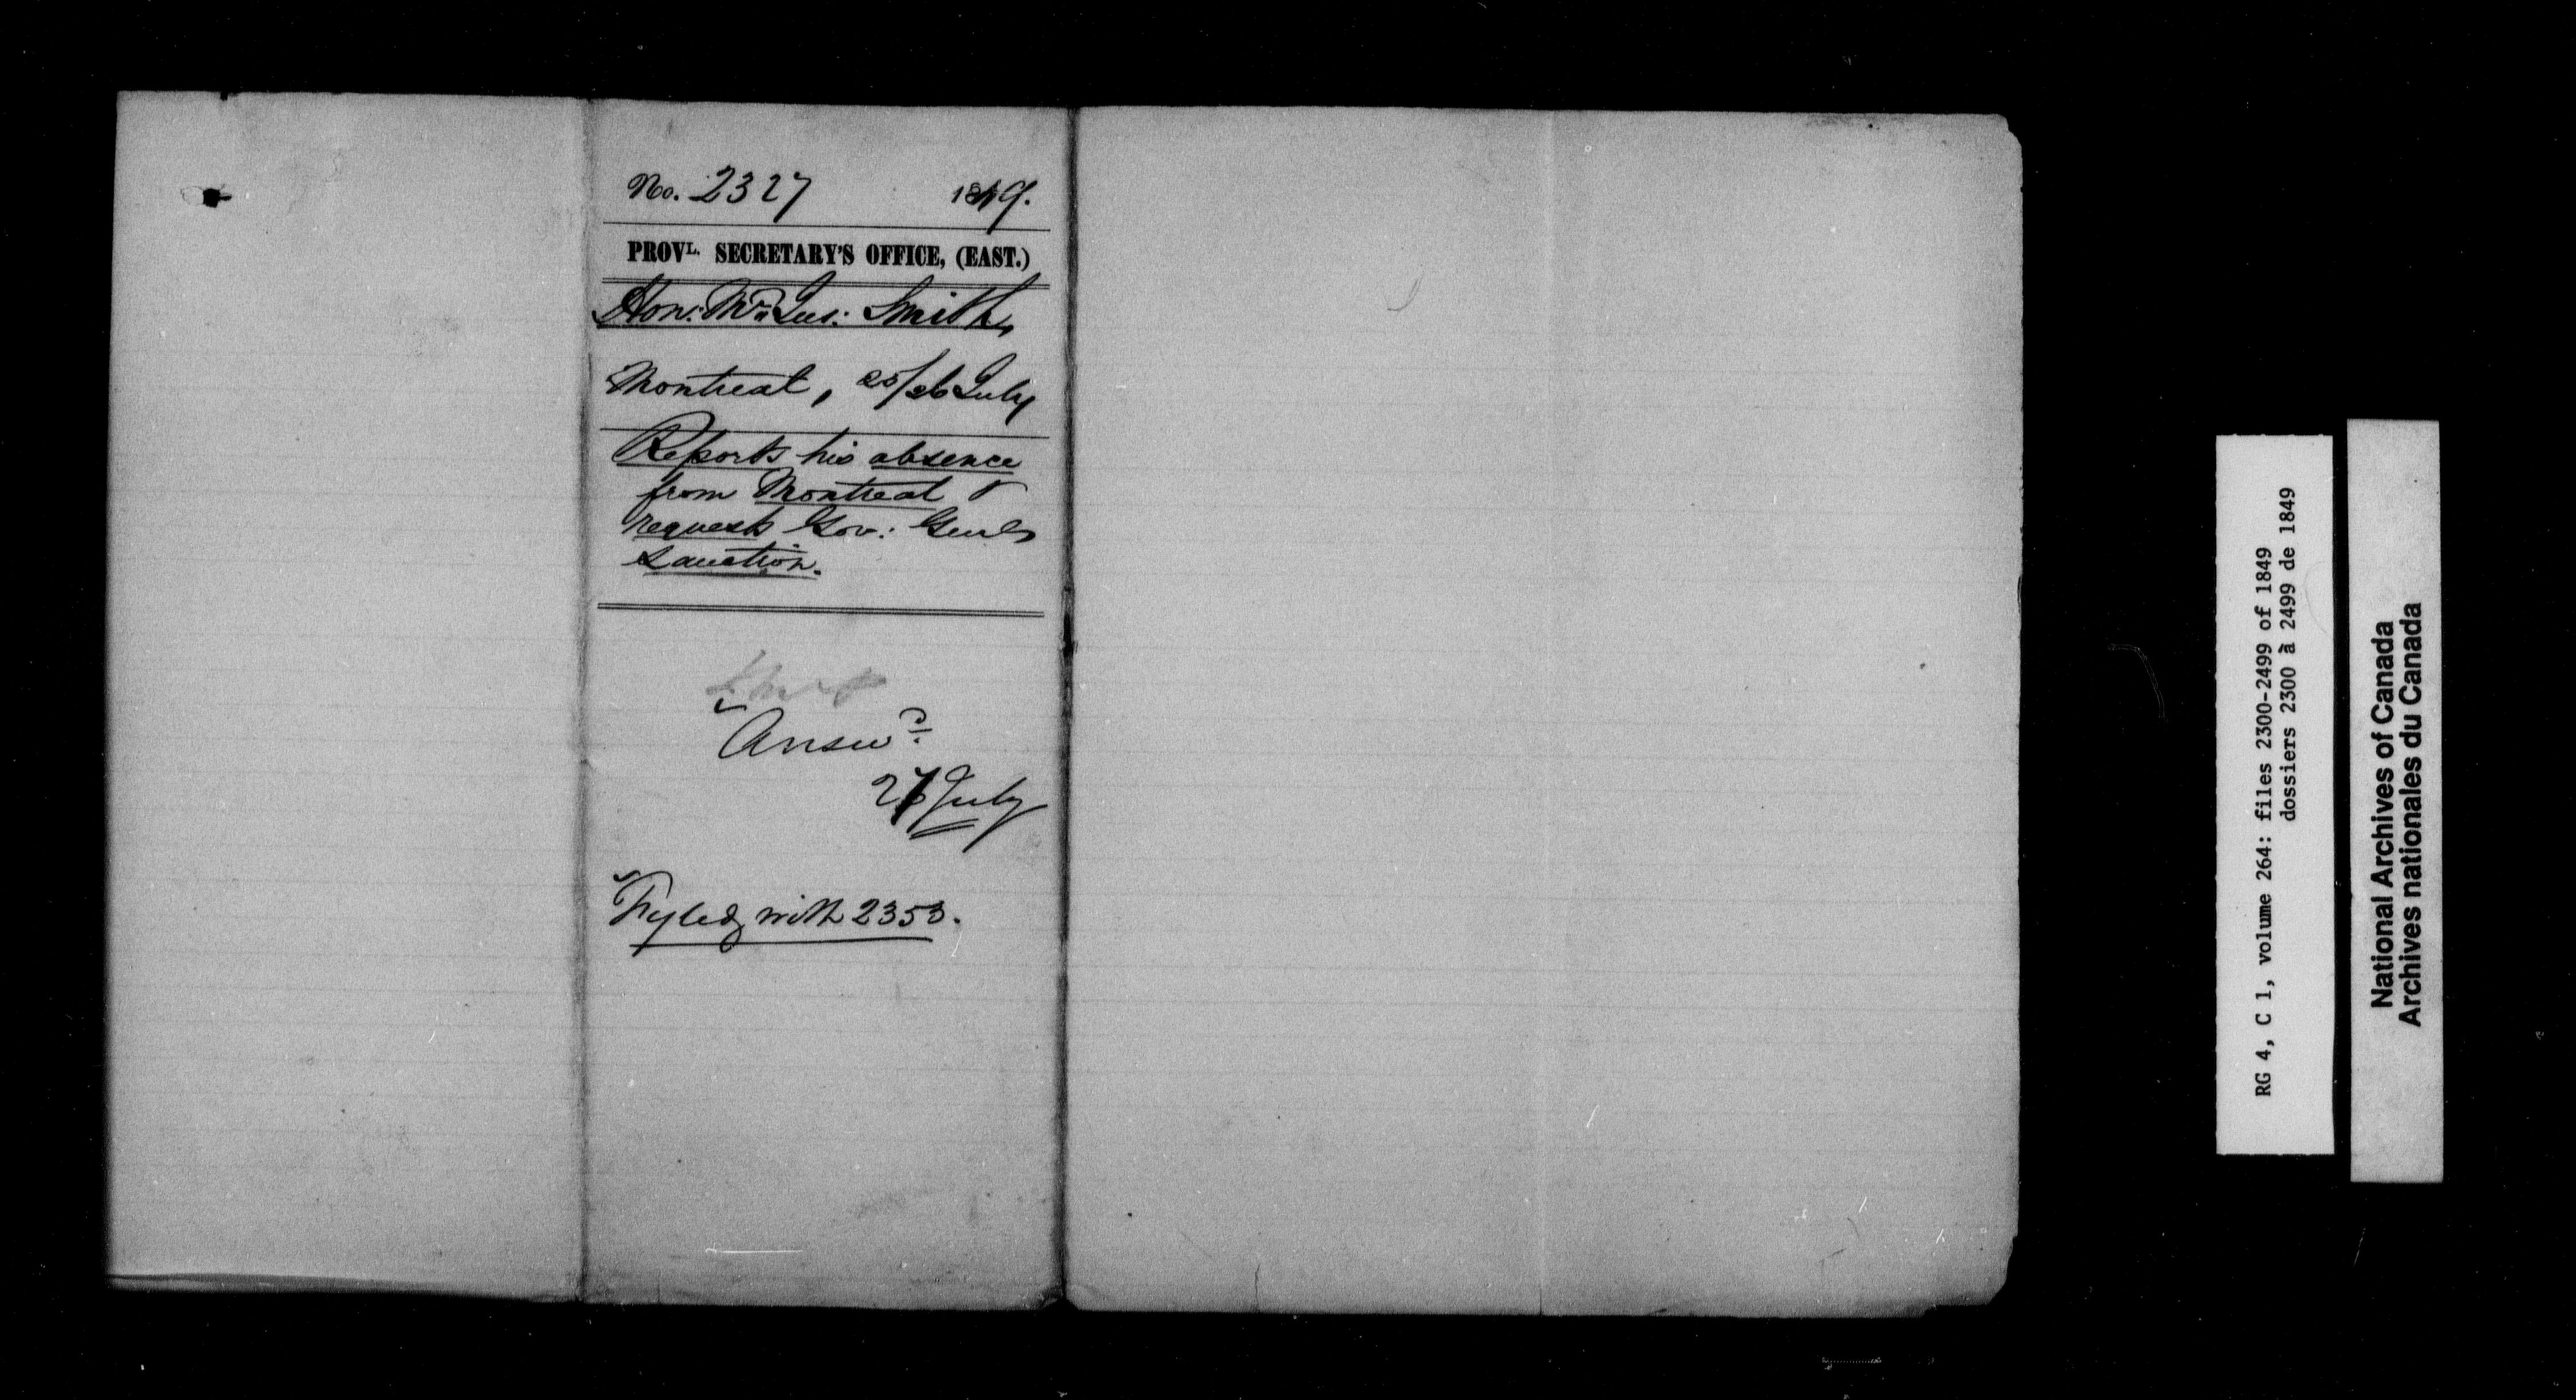 No. 2327 1849.
PROVL. SECRETARY'S OFFICE, (EAST.)
Hon: Mr. Jus: Smith,
Montreal, 25/26 July
Reports his absence
from Montreal &
requests Gov: Genls
Sanction.
Answd.
27 July
Fyled with 2353.
RG 4, C 1, volume 264: files 2300-2499 of 1849
dossiers 2300 à 2499 de 1849
National Archives of Canada
Archives nationales du Canada